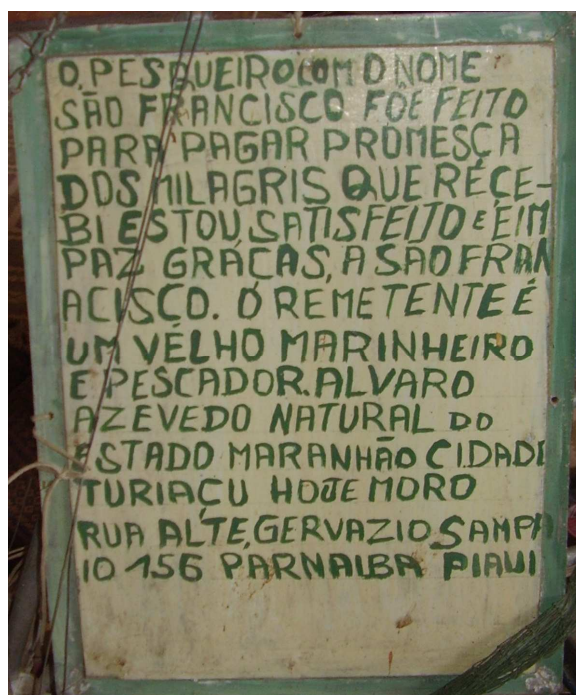 O, PESQUEIRO COM O NOME
SÃO FRANCISCO FOE FEITO
PARA PAGAR PROMESÇA
DOS MILAGRIS QUE RÉCE-
BI ESTOU SATISFEITO E EIM
PAZ GRÁCAS, A SÃO FRAN
ACISCO. O REMETENTE É
UM VÉLHO MARINHEIRO
E PESCADOR. ALVARO
AZEVEDO NATURAL DO
ESTADO MARANHÃO CIDADE
TURIAÇU HOJE MORO
RUA ALTE, GERVAZIO SAMPA
IO 156 PARNAIBA PIAUI